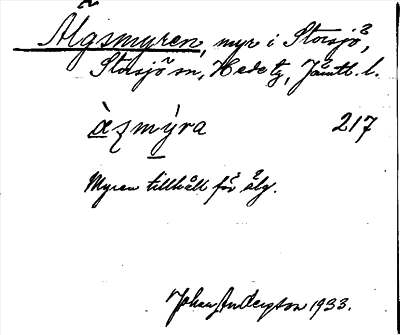 Älgsmyren, myr i Storsjö,
Storsjö sn, Hede tg, Jämtl. l.
àʒmýra 217
Myren tillhåll för älg.
Johan Anderzson 1933.